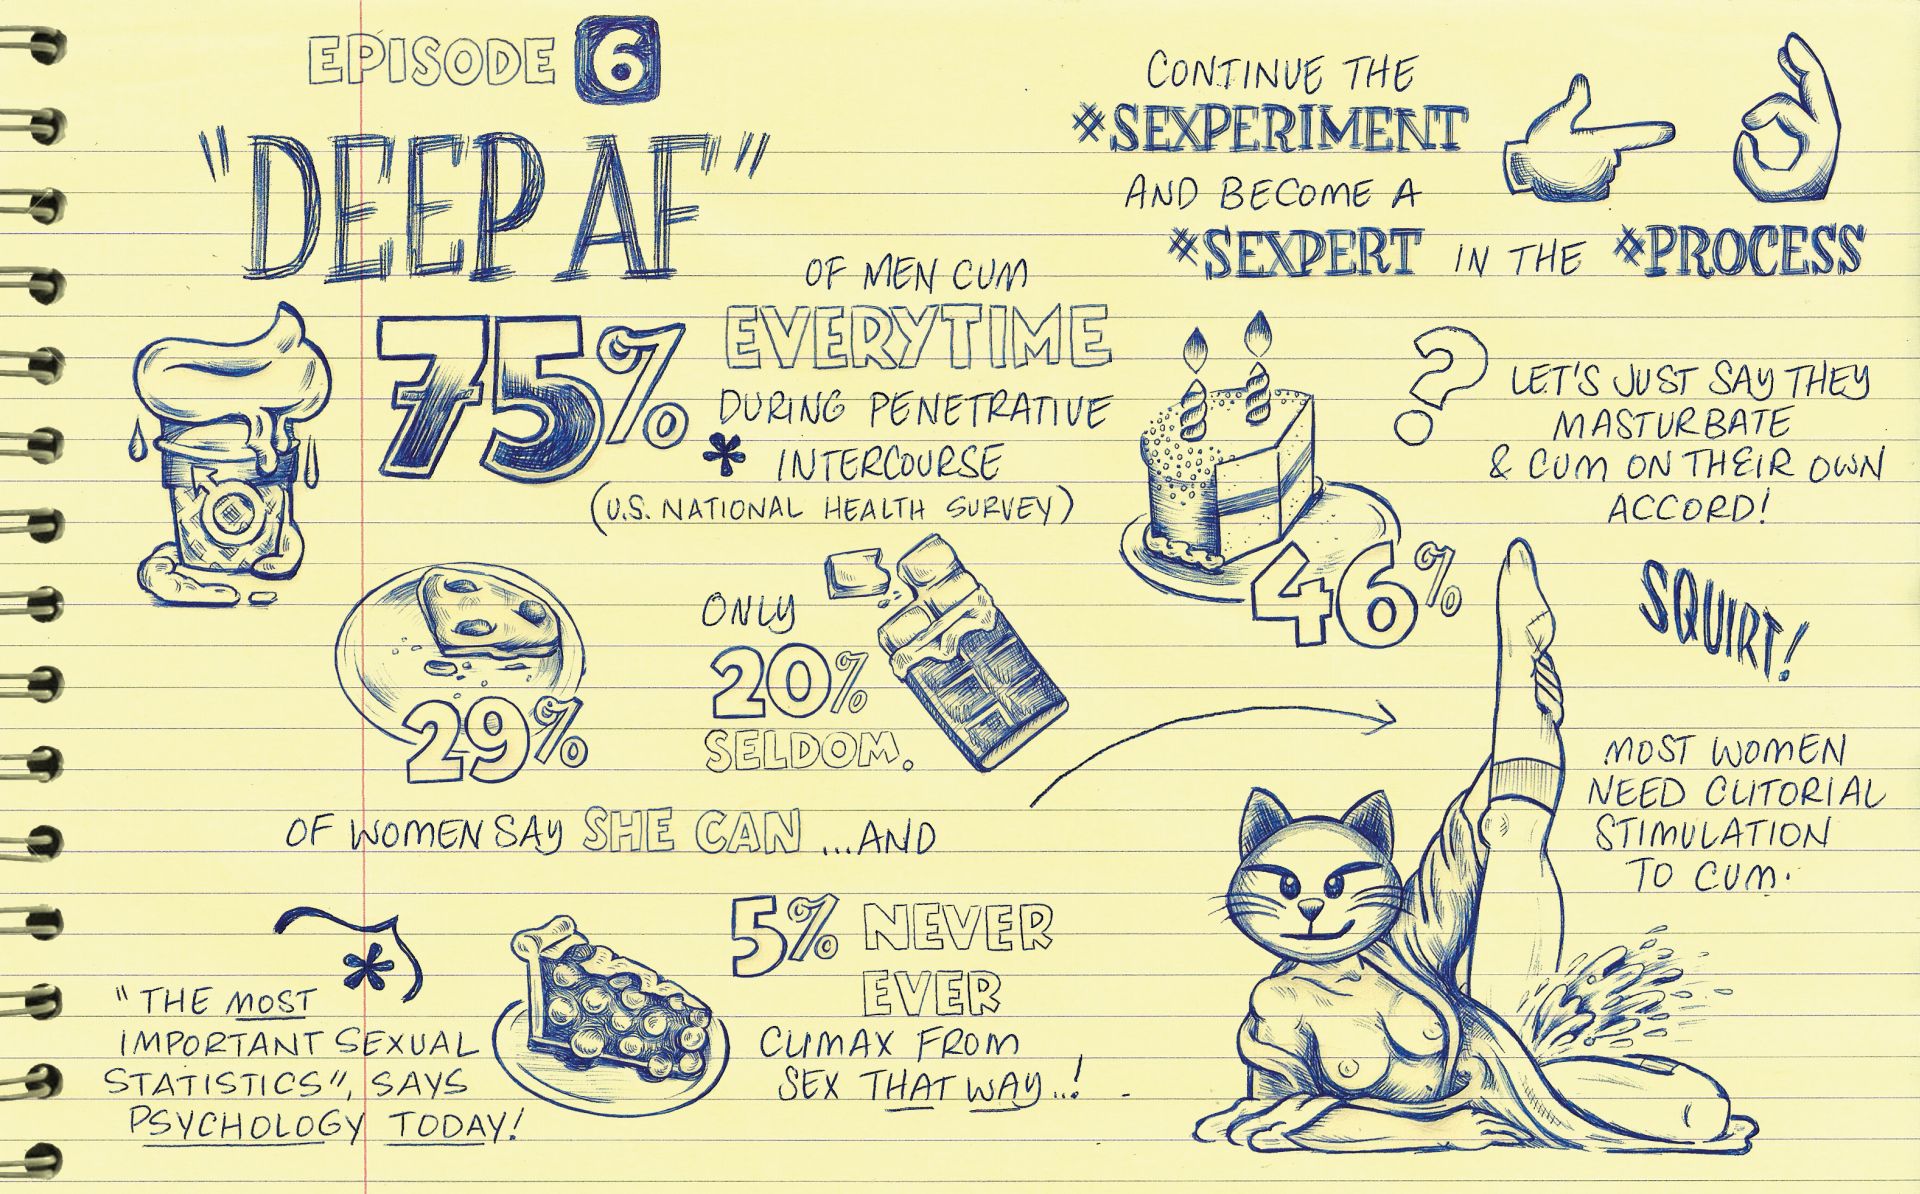 EPISODE 6
"DEEP AF"
CONTINUE THE
#SEXPERIMENT
AND BECOME A
#SEXPERT IN THE #PROCESS
75%
OF MEN CUM
EVERYTIME
DURING PENETRATIVE
* INTERCOURSE
(U.S. NATIONAL HEALTH SURVEY)
?
LET'S JUST SAY THEY
MASTURBATE
& CUM ON THEIR OWN
ACCORD!
46%
29%
OF WOMEN SAY SHE CAN ...AND
ONLY
20%
SELDOM.
SQUIRT!
MOST WOMEN
NEED CLITORIAL
STIMULATION
TO CUM.
*
"THE MOST
IMPORTANT SEXUAL
STATISTICS", SAYS
PSYCHOLOGY TODAY!
5% NEVER
EVER
CLIMAX FROM
SEX THAT WAY...!